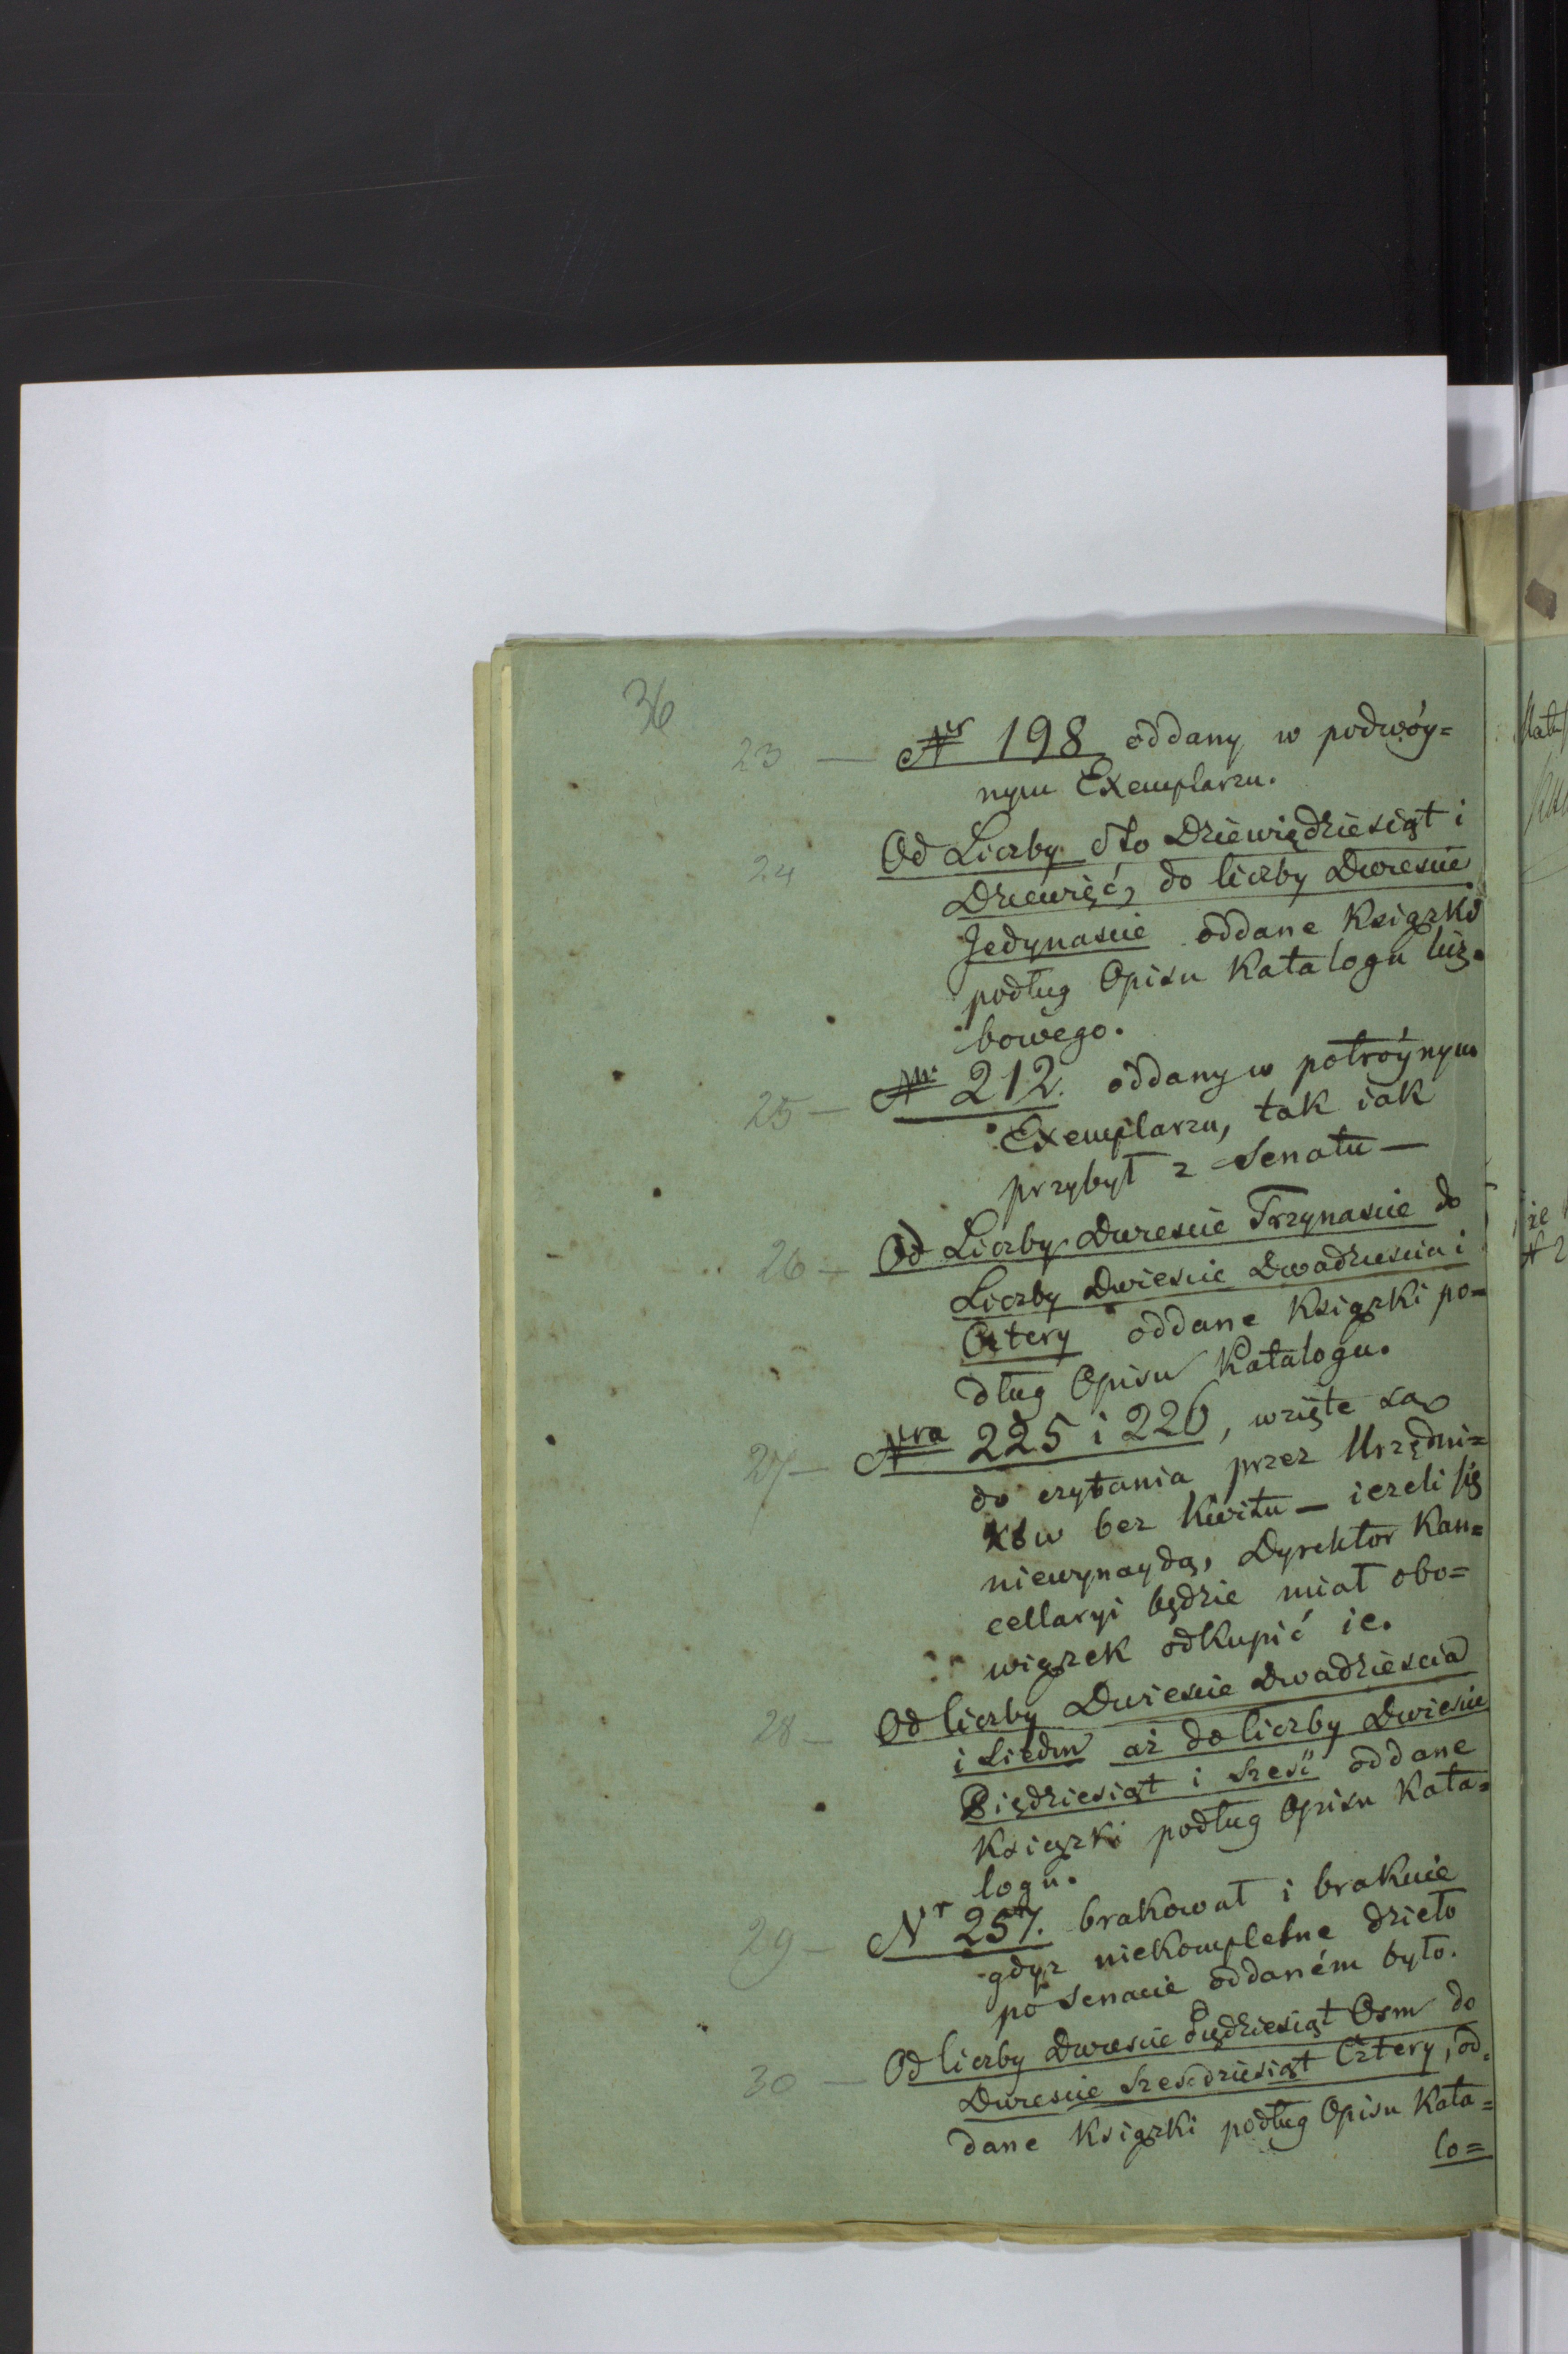 36
23 — Nr 198 oddany w podwóy=
nym Exemplarzu.
24 Od Liczby Sto Dziewiędziesiąt i
Dziewięć, do liczby Dwiescie
Jedynascie oddane Książki
podług Opisu Katalogu licz=
bowego.
25 — Nr. 212. oddany w potróynym
Exemplarzu, tak iak
przybył z Senatu —
26 — Od Liczby Dwiescie Trzynascie do
Liczby Dwiescie Dwadziescia i
Cztery oddane Książki po=
dług Opisu Katalogu.
27 — Nra 225 i 226, wzięte są
do czytania przez Urzędni=
ków bez Kwitu — ieżeli się
niewynaydą, Dyrektor Kan=
cellaryi będzie miał obo=
wiązek odkupić ie.
28 — Od liczby Dwiescie Dwadziescia
i Siedm aż do liczby Dwiescie
Piędziesiąt i Szesć oddane
Książki podług Opisu Kata=
logu.
29 — Nr 257. brakował i brakuie
gdyż niekompletne dzieło
po Senacie oddaném było.
30 — Od liczby Dwiescie Piędziesiąt Osm do
Dwiescie Szesdziesiąt Cztery, od=
dane Książki podług Opisu Kata=
lo=